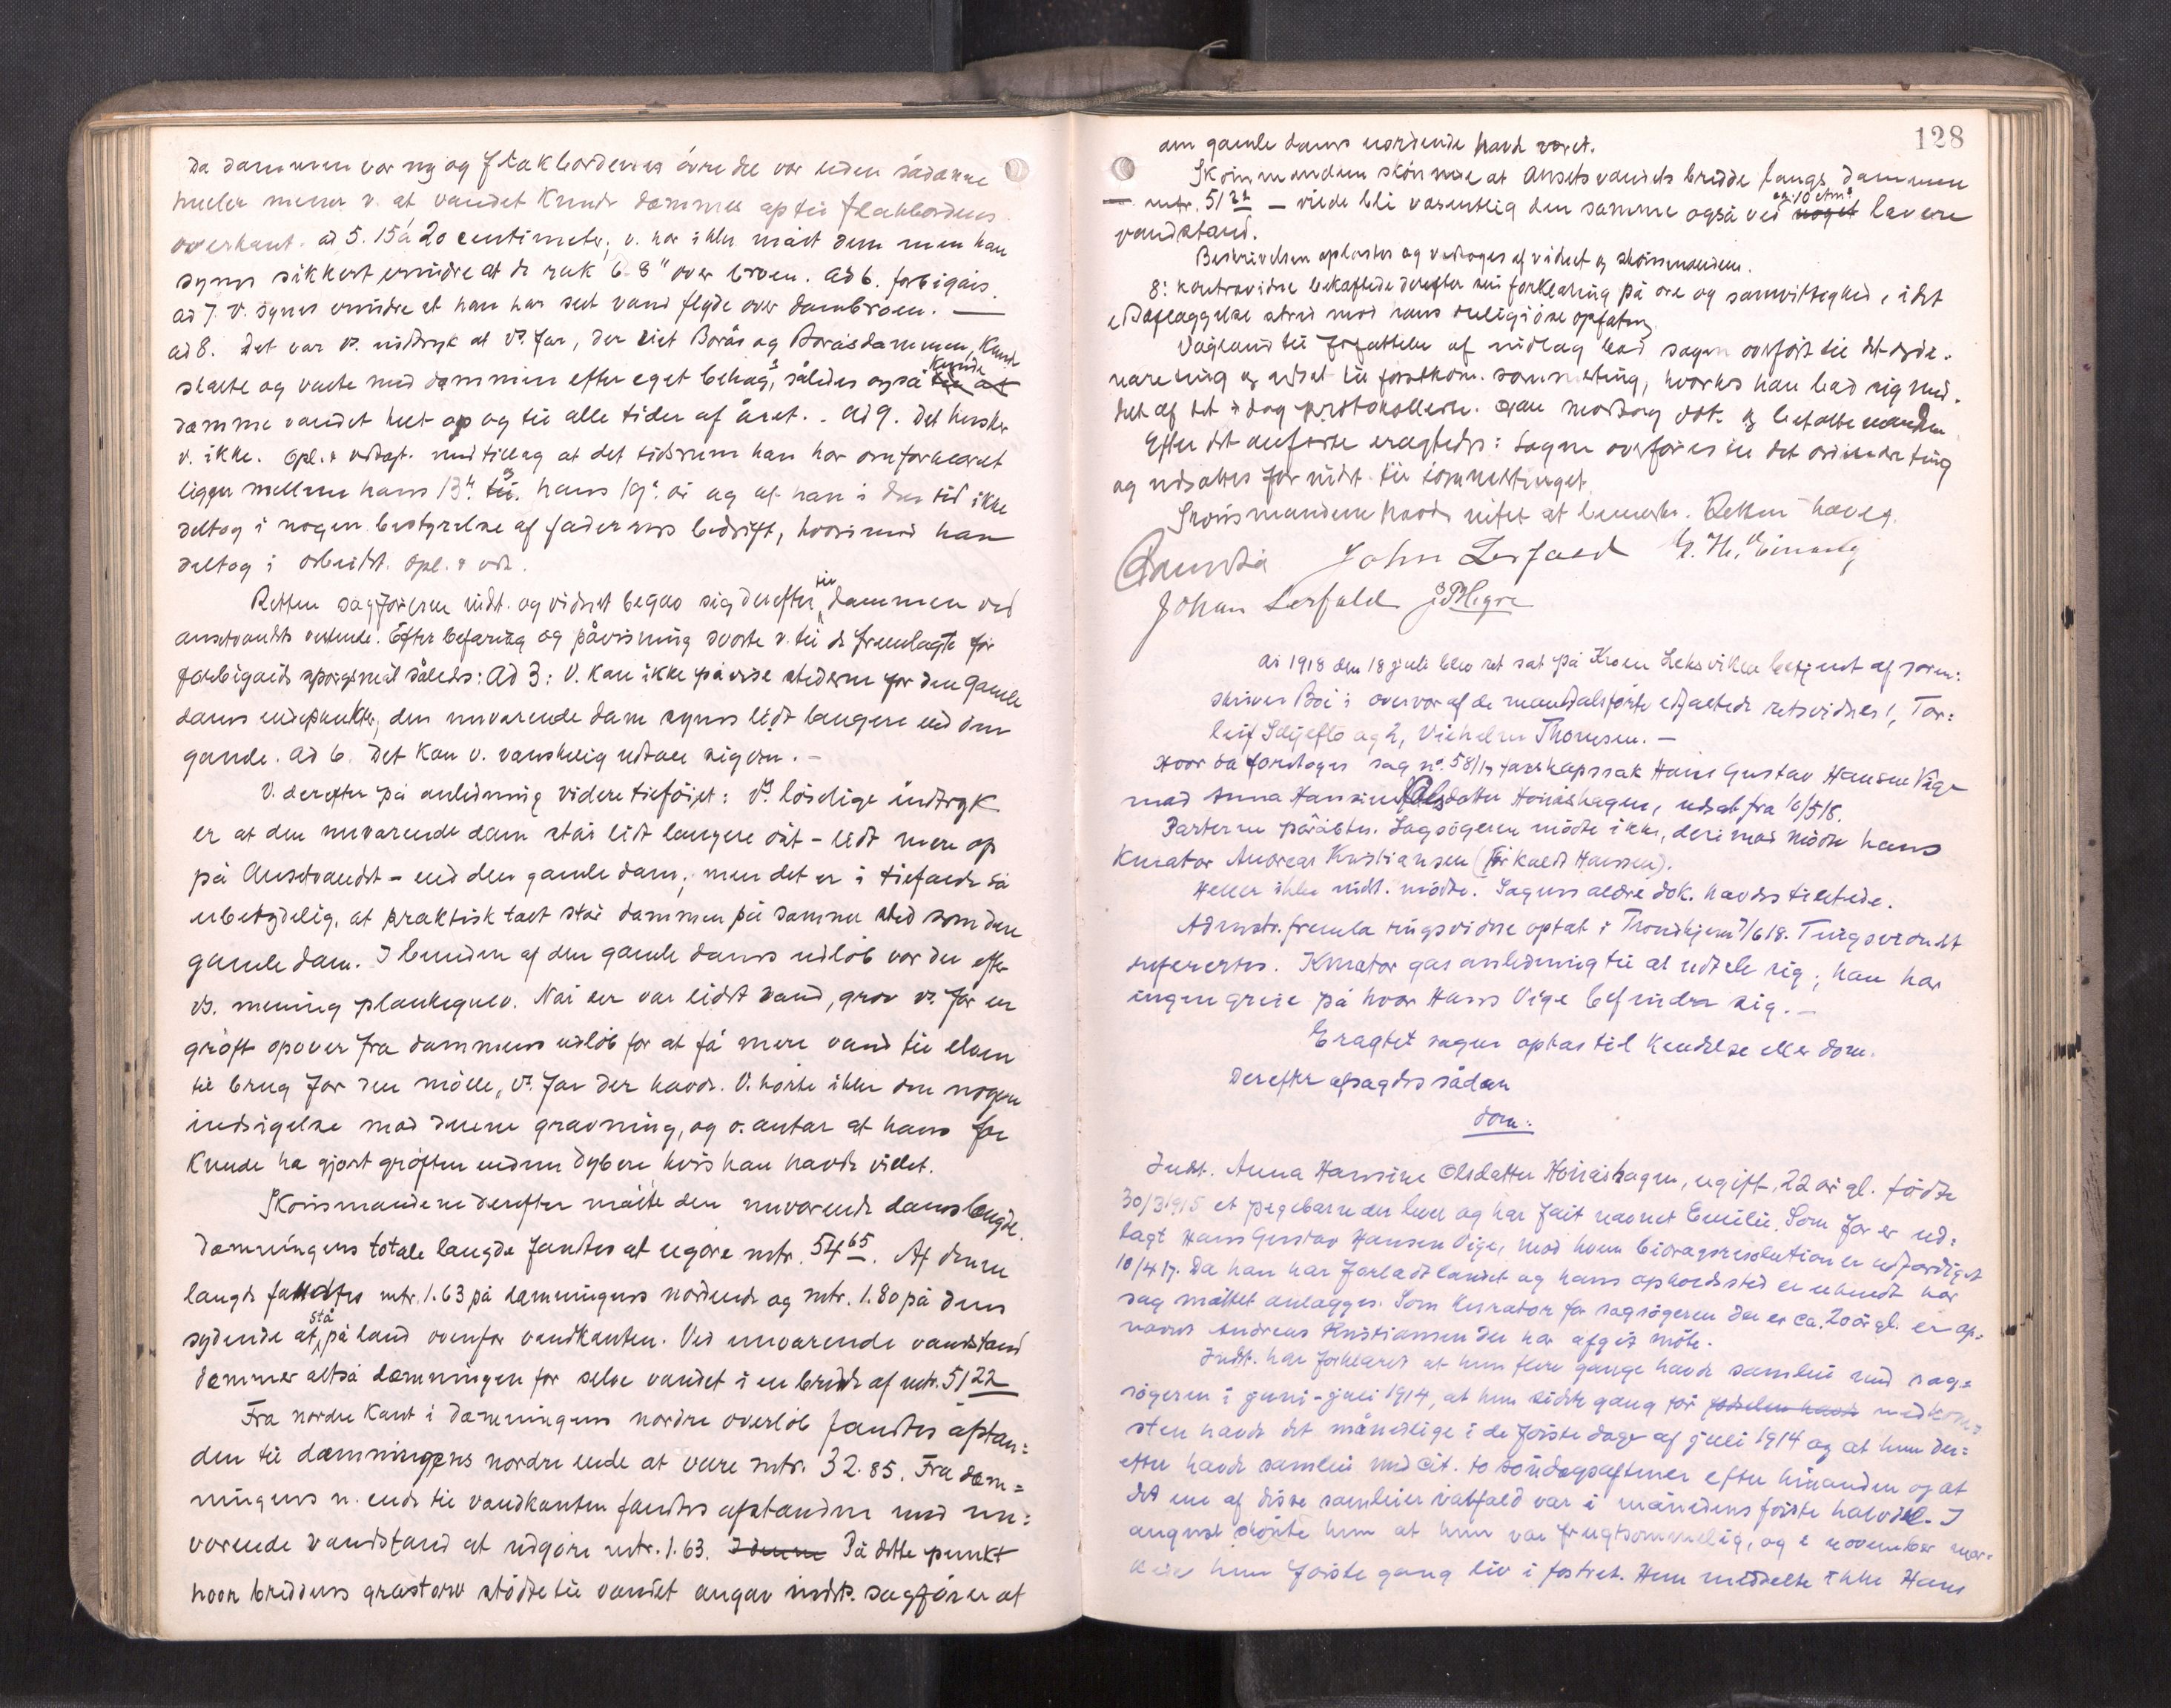 da dammen var ny og flakbordenes övre del var uden sådanne
huller mener v. at vandet kunde dæmmes op til flakbordens
overkant. ad 5. 15 à 20 centimeter; v. har ikke målt dem men han
synes sikkert erindre at de rak 6-8" over broen. ad 6. forbigåes.
ad 7. v. synes erindre at han har set vand flyde over dambroen. —
ad 8. Det var vs. indtryk at vs. far, der eiet Borås og Boråsdammen, kunde
skalte og valte med dammen efter eget behag, således også kunde
dæmme vandet helt op og til alle tider af året. - ad 9. Det husker
v. ikke. Opl. & vedtat. med tillæg at det tidsrum han har om forklaret
ligger mellem hans 13de og hans 19de år og at han i den tid ikke
deltog i nogen bestyrelse af faderens bedrift, hvorimod han
deltog i arbeidet. Opl. & vedt.
Retten sagförerne indst. og vidnet begav sig derefter til dammen ved
ansetvandets vestende. Efter befaring og påvisning svarte v. til de fremlagte för
forbigåede spörgsmål således: Ad 3: V. kan ikke påvise stederne for den gamle
dams endepunkter, den nuværende dam synes lidt længere end den
gamle. ad 6. Det kan v. vanskelig udtale sig om. —
V. derefter på anledning videre tilföiet: Vs. löselige indtryk
er at den nuværende dam står lidt længere öst - lidt mere op
på Ansetvandet - end den gamle dam, men det er i tilfælde så
ubetydelig, at praktisk talt står dammen på samme sted som den
gamle dam. I bunden af den gamle dams udlöb var der efter
vs. mening plankegulv. Når der var lidet vand, grov vs. far en
gröft opover fra dammens udlöb for at få mere vand til elven
til brug for den mölle, vs. far der havde. V. hörte ikke om nogen
indsigelse mod denne gravning, og v. antar at hans far
kunde ha gjort gröften endnu dybere hvis han havde villet.
Skönsmandene derefter målte den nuværende dams længde.
Dæmningens totale længde fandtes at udgöre mtr. 54.65. Af denne
længde fandtes mtr. 1.63 på dæmningens nordende og mtr. 1.80 på dens
sydende at stå på land ovenfor vandkanten. Ved nuværende vandstand
dæmmer altså dæmningen for selve vandet i en bredde af mtr. 51.22
Fra nordre kant i dæmningens nordre overlöb fandtes afstan=
den til dæmningens nordre ende at være mtr. 32.85. Fra dæm=
ningens n. ende til vandkanten fandtes afstanden med nu=
værende vandstand at udgöre mtr. 1.63. I denne På dette punkt
hvor breddens græstorv stödte til vandet angav indst. sagförer at
128
den gamle dams nordende havde været.
Skönsmandene skönnede at Ansetsvandets bredde langs dammen
— mtr. 51.22 — vilde bli væsentlig den samme også ved ca. 10 ctm. noget lavere
vandstand.
Beskrivelsen oplæstes og vedtoges af vidnet og skönsmandene.
8de kontravidne bekræftede derefter sin forklaring på ære og samvittighed, idet
edsaflæggelse stred mod hans religiöse opfatning.
Vågland til forfattelse af indlæg bad sagen overfört til det ordi=
nære ting og udsat til förstkom. sommerting, hvorhos han bad sig med=
delt af det i dag protokollerte.
Efter det anförte eragtedes: Sagen overföres til det ordinære ting
og udsættes for indst. til sommertinget.
Skönsmandene havde intet at bemerke. Retten hævet.
John Lerfald
Johan Lerfald
År 1918 den 18 juli blev ret sat på Kroen Leksviken betjent af soren=
skriver Boë i overvær af de mandtalsförte edfæstede retsvidner 1, Tor=
leif og 2, Vilhelm Thomsen. —
Hvor da foretoges sag no. 58/17 farskapssak Hans Gustav Hansen Vige
mod Anna Hansine Olsdatter Hönåshagen, udsat fra 10/5 18.
Parterne påråbtes. Sagsögeren mödte ikke, derimod mödte hans
kurator Andreas Kristiansen (för kaldt Hansen).
Heller ikke indst. mödte. Sagens ældre dok. havdes tilstede.
Admstr. fremla tingsvidne optat i Trondhjem 7/6 18. Tingsvidnet
infereres. Kurator gas anledning til at udtale sig; han har
ingen greie på hvor Hans Vige befinder sig. —
Eragtet sagen optas til kendelse eller dom.
Derefter afsagdes sådan
dom:
Indst. Anna Hansine Olsdatter Hönåshagen, ugift, 22 år gl. födte
30/3 1915 et pigebarn der lever og har fåit navnet Emilie. Som far er ud=
lagt Hans Gustav Hansen Vige, mod hvem bidragsresolution er udfærdiget
10/4 17. Da han har forladt landet og hans opholdssted er ukendt har
sag måttet anlægges. Som kurator for sagsögeren der er ca. 20 år gl. er op=
nævnt Andreas Kristiansen der har afgit möte.
Indst. har forklaret at hun flere gange havde samleie med sag=
sögeren i juni-juli 1914, at hun sidste gang för födselen havde nedkom=
sten havde det månedlige i de förste dage af juli 1914 og at hun der=
efter havde samleie med cit. to söndagsaftener efter hinanden og at
det ene af disse samleier ialfald var i månedens förste halvdel. I
august skönte hun at hun var frugtsommelig, og i november mær=
kede hun förste gang liv i fostret. Hun meddelte ikke Hans